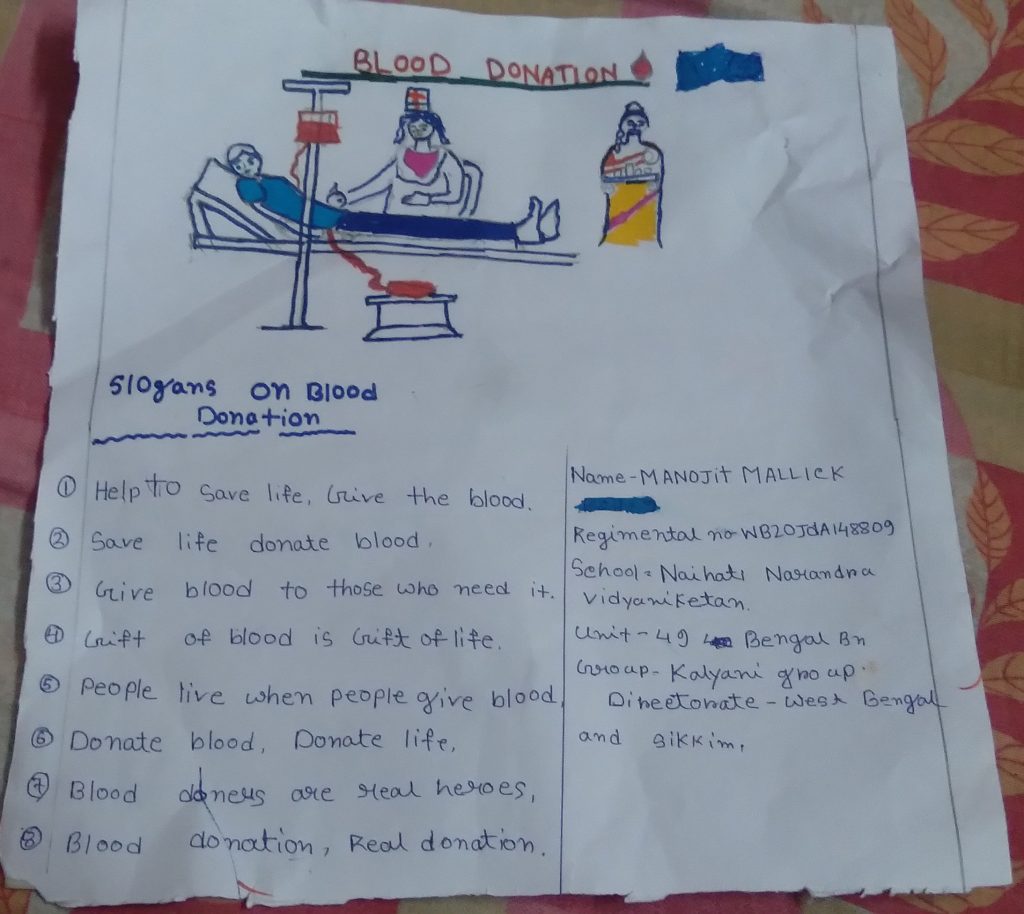 BLOOD DONATION
Slogans on Blood
Donation
① Help to save life, Give the blood.
② Save life donate blood.
③ Give blood to those who need it.
④ Gift of blood is Gift of life.
⑤ People live when people give blood,
⑥ Donate blood, Donate life,
⑦ Blood doners are real heroes,
⑧ Blood donation, Real donation.
Name - MANOJIT MALLICK
Regimental no WB20JdA148809
School = Naihati Narandra
Vidyaniketan.
Unit - 49 Bengal Bn
Group - Kalyani group.
Directorate - West Bengal
and sikkim,